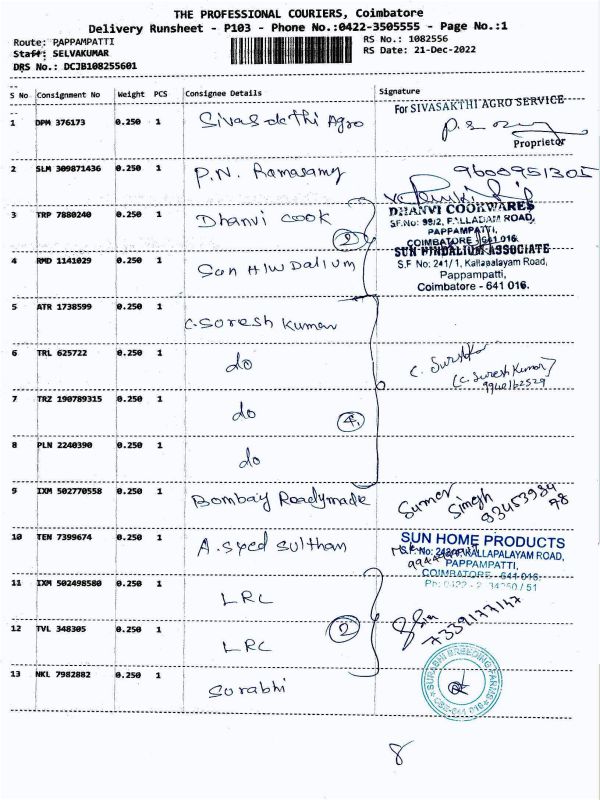 THE PROFESSIONAL COURIERS, Coimbatore
Delivery Runsheet - P103 - Phone No.:0422-3505555 - Page No.:1
Route: PAPPAMPATTI RS No.: 1082556
Staff: SELVAKUMAR RS Date: 21-Dec-2022
DRS No.: DCJB108255601
S No Consignment No Weight PCS Consignee Details Signature
For SIVASAKTHI AGRO SERVICE
1 DPM 376173 0.250 1 Sivasakthi Agro
Proprietor
2 SLM 309871436 0.250 1 P.N. Ramasamy 9600951305
3 TRP 7880240 0.250 1 Dhanvi cook 2 DHANVI COOKWARES
S.F.No: 99/2, PALLADAM ROAD,
PAPPAMPATTI,
COIMBATORE - 641 016.
4 RMD 1141029 0.250 1 Sun HIW Dalium SUN HINDALIUM ASSOCIATE
S.F No: 241/1, Kallapalayam Road,
Pappampatti,
Coimbatore - 641 016.
5 ATR 1738599 0.250 1 C. Soresh Kumar
6 TRL 625722 0.250 1 do
(C. Suresh Kumar)
7 TRZ 190789315 0.250 1 do 4
8 PLN 2240390 0.250 1 do
9 IXM 502770558 0.250 1 Bombay Readymade Sumer Singh
10 TEN 7399674 0.250 1 A. Syed Sultham SUN HOME PRODUCTS
KALLAPALAYAM ROAD,
PAPPAMPATTI,
COIMBATORE - 641 016.
11 IXM 502498580 0.250 1 LRC
12 TVL 348305 0.250 1 LRC 2
7339177147
13 NKL 7982882 0.250 1 Surabhi SURABHI BREEDING FARMS
CBE-641 016
8